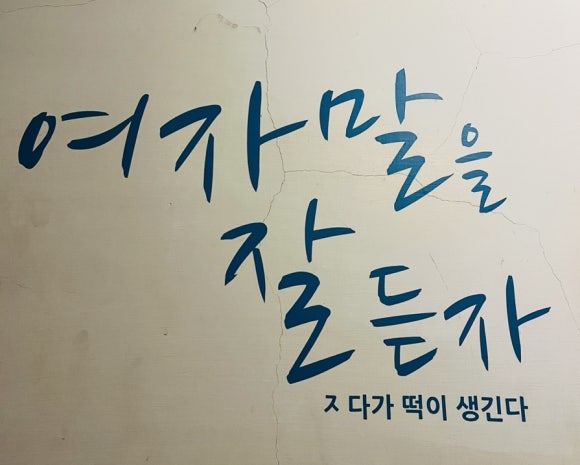 여자 말을
잘 듣자
ㅈ다가 떡이 생긴다